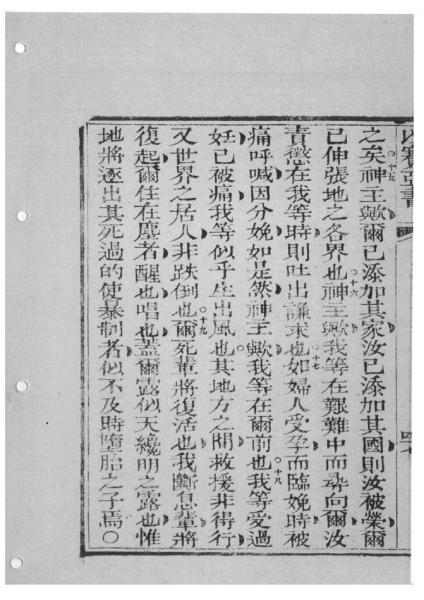 以賽亞書
之矣○十五神主歟爾已添加其家汝已添加其國則汝被榮爾
已伸張地之各界也○十六神主歟我等在艱難中而尋向爾汝
責懲在我等時則吐出謙求也○十七如婦人受孕而臨娩時被
痛呼喊因分娩如是然神主歟我等在爾前也○十八我等受過
妊已被痛我等似乎生出風也其地方之間救援非得行
又世界之居人非跌倒也○十九爾死輩將復活也我斷息輩將
復起爾住在塵者醒也唱也蓋爾露似天纔明之露也惟
地將逐出其死過的使暴制者似不及時墮胎之子焉○